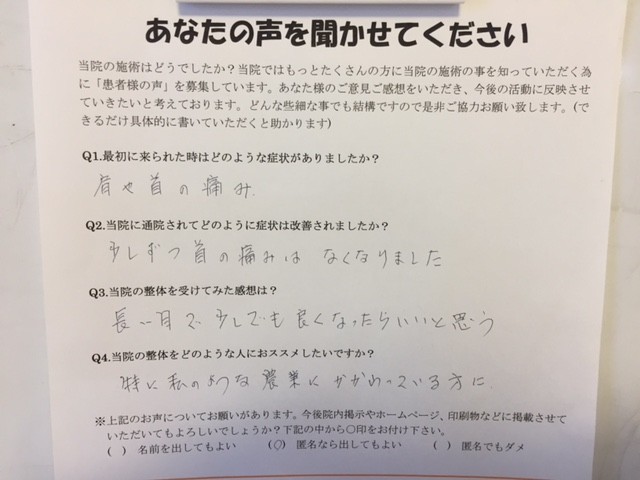 あなたの声を聞かせてください
当院の施術はどうでしたか？当院ではもっとたくさんの方に当院の施術の事を知っていただく為
に「患者様の声」を募集しています。あなた様のご意見ご感想をいただき、今後の活動に反映させ
ていきたいと考えております。どんな些細な事でも結構ですので是非ご協力お願い致します。(で
きるだけ具体的に書いていただくと助かります)
Q1.最初に来られた時はどのような症状がありましたか？
肩や首の痛み
Q2.当院に通院されてどのように症状は改善されましたか？
少しずつ首の痛みは なくなりました
Q3.当院の整体を受けてみた感想は？
長い目で少しでも良くなったらいいと思う
Q4.当院の整体をどのような人におススメしたいですか？
特に私のような農業にかかわっている方に
※上記のお声についてお願いがあります。今後院内掲示やホームページ、印刷物などに掲載させて
いただいてもよろしいでしょうか？下記の中から○印をお付け下さい。
( ) 名前を出してもよい (○) 匿名なら出してもよい ( ) 匿名でもダメ